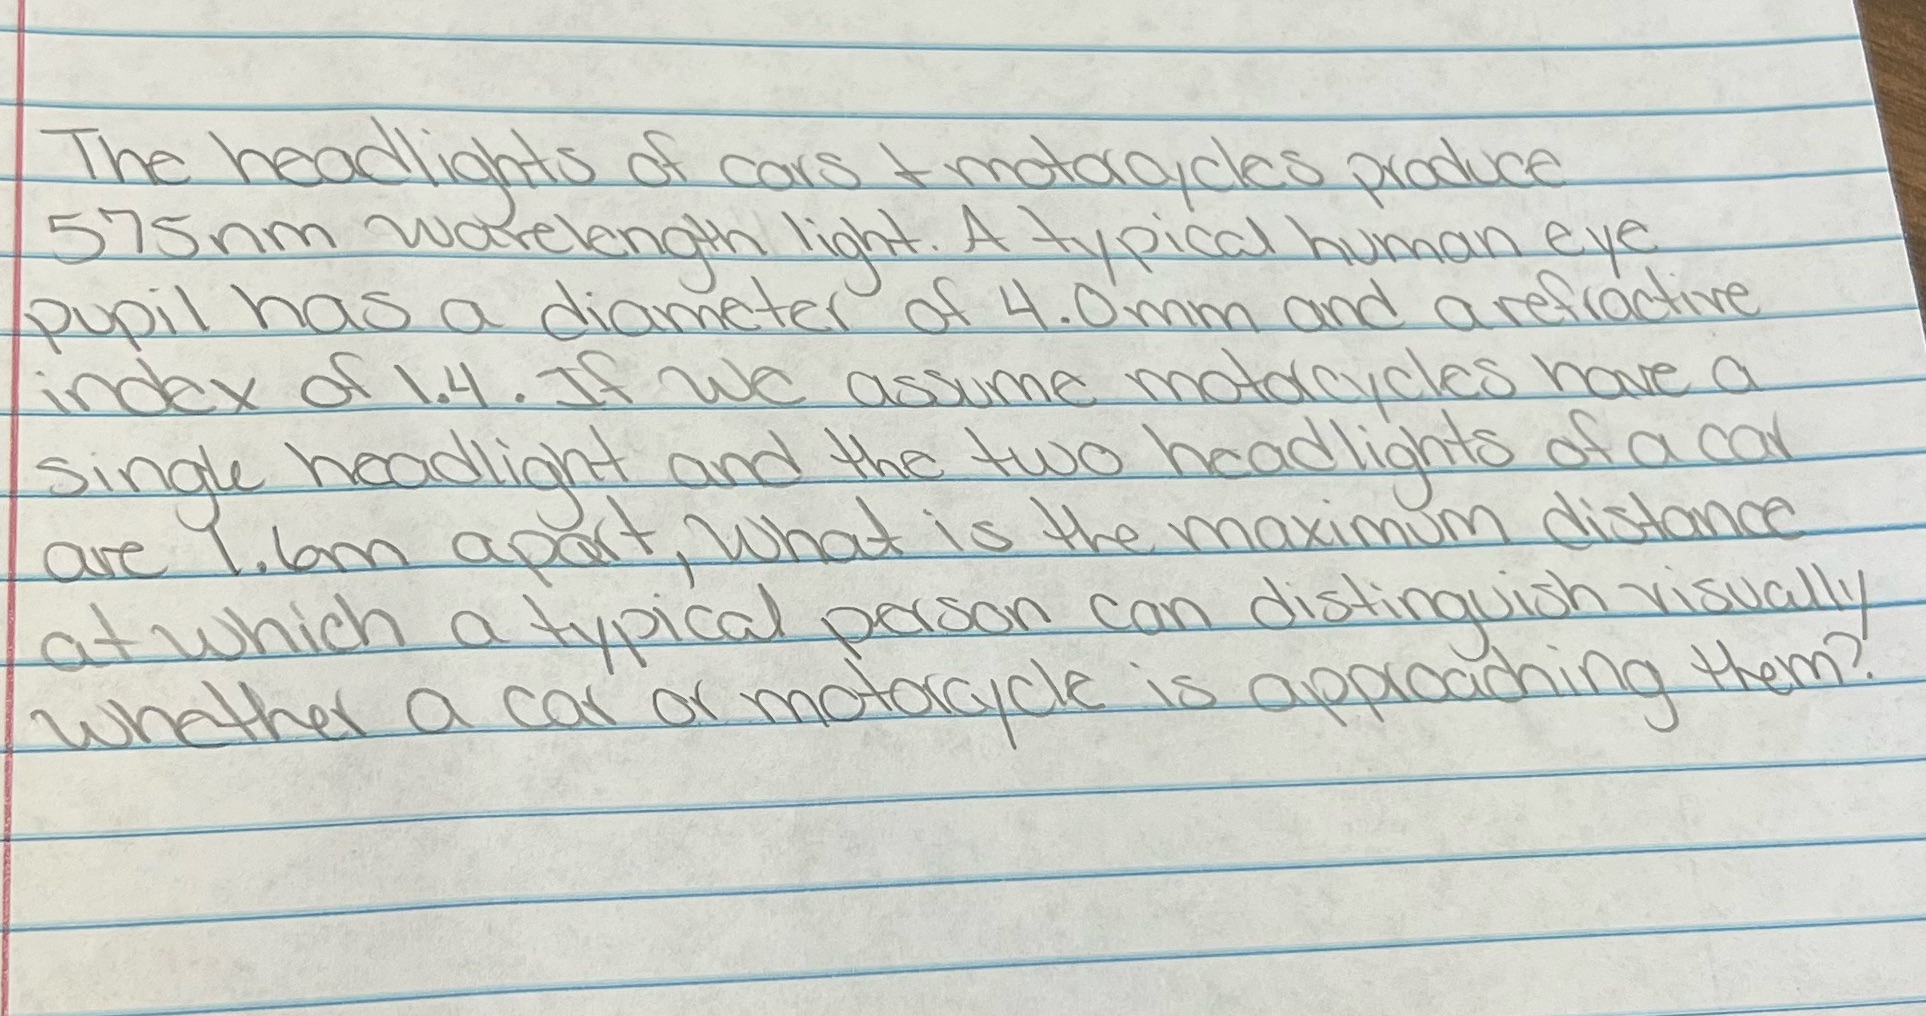 The headlights of cars + motorcycles produce
575nm wavelength light. A typical human eye
pupil has a diameter of 4.0mm and a refractive
index of 1.4. If we assume motorcycles have a
single headlight and the two headlights of a car
are 1.6m apart, what is the maximum distance
at which a typical person can distinguish visually
whether a car or motorcycle is approaching them?